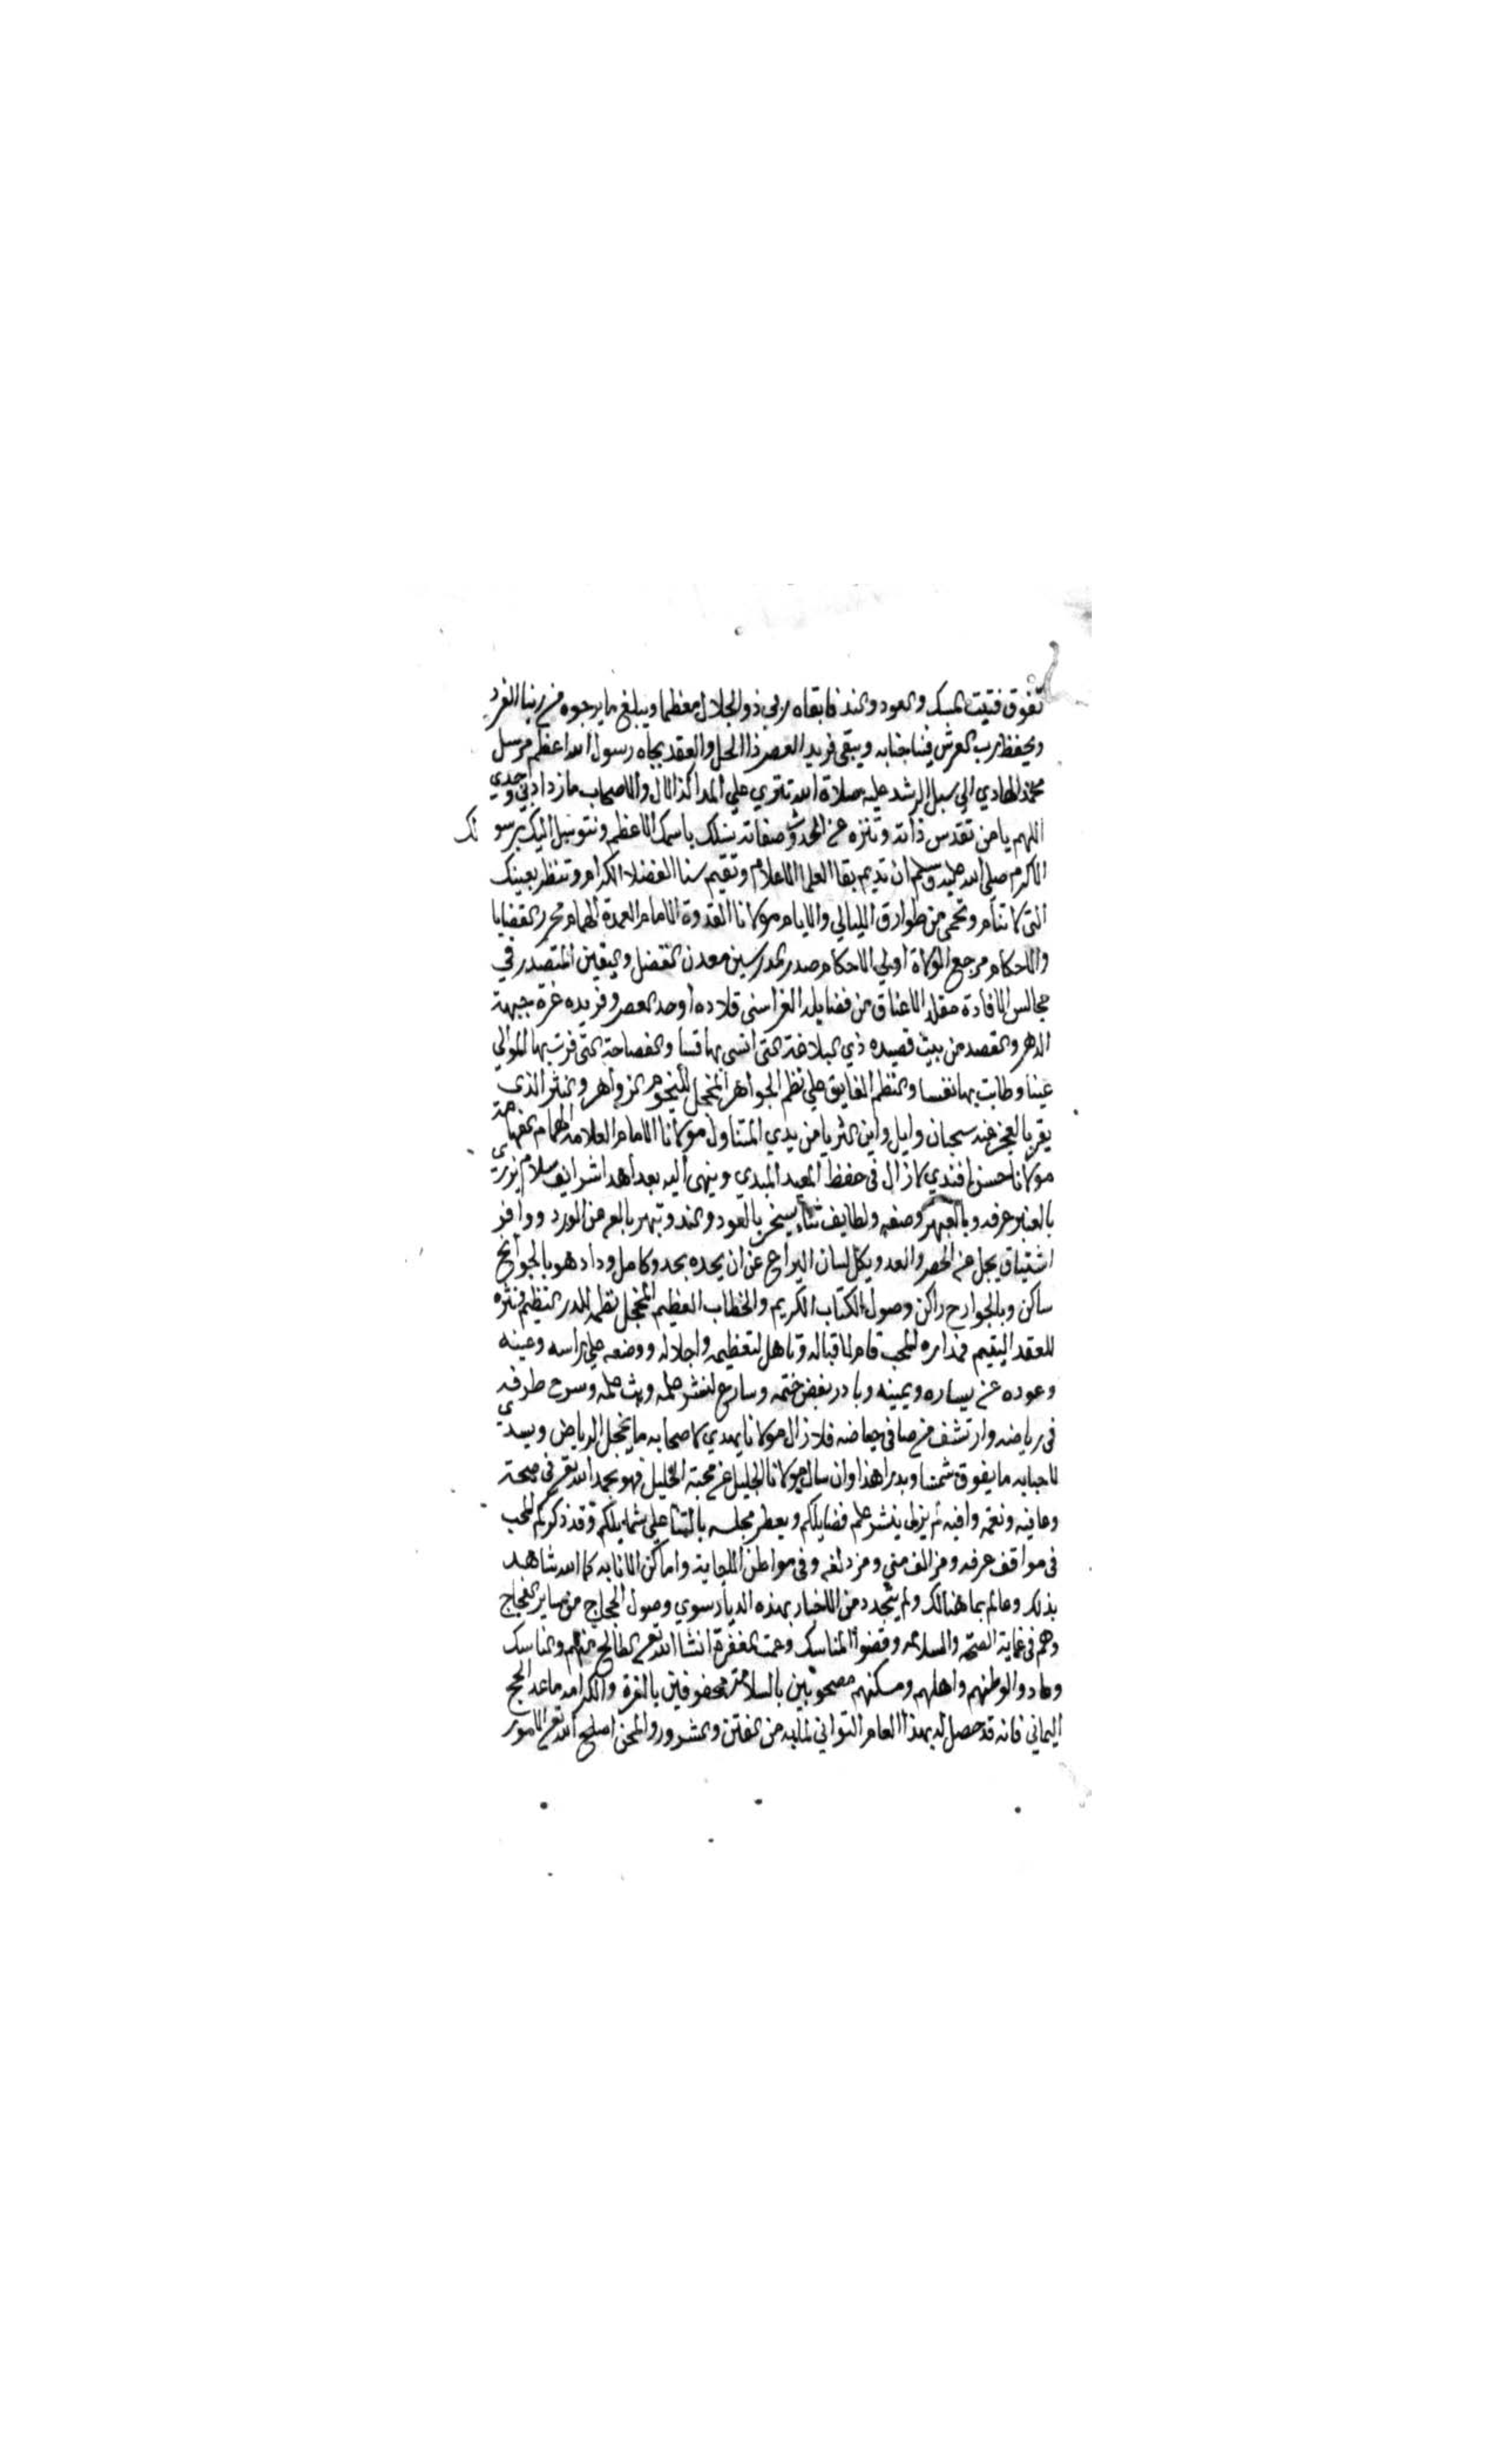 تفوق فتيت المسك والعود والند فابقاه ربي ذو الجلال معظما ويبلغ ما يرجوه من ربنا الفرد
ويحفظ رب العرش فينا جنابه ويبقى فريد العصر ذا الحل والعقد بجاه رسول الله اعظم مرسل
محمد الهادي الى سبل الرشد عليه صلاة الله تتري علي المدا كذا الال والاصحاب ما زاد بي وجدي
اللهم يا من تقدس ذاته وتنزه عن الحدوث صفاته نسئلك باسمك الاعظم ونتوسل اليك برسولك
الاكرم صلي الله عليه وسلم ان تديم بقا العلما الاعلام وتقيم سنا الفضلا الكرام وتنظر بعينك
التي لا تنام وتحمي من طوارق الليالي والايام مولانا القدوة الامام العمدة الهمام محرر القضايا
والاحكام مرجع الولاة اولي الاحكام صدر المدرسين معدن الفضل واليقين المتصدر في
مجالس الافادة مقلد الاعناق من فضايله الغر اسني قلاده اوحد العصر وفريده غرة جبهة
الدهر والقصد من بيت قصيده ذي البلاغة التي انسي بها قسا والفصاحة التي قرت بها الموالي
عينا وطابت بها نفسا والنظم الفايق علي نظم الجواهر المخجل للنجوم الزواهر والنثر الذي
يقر بالعجز عنه سحبان وايل واين الثريا من يدي المتناول مولانا الامام العلامه الهمام الفهامة
مولانا حسن افندي لا زال في حفظ المعيد المبدي وينهي اليه بعد اهدا شرايف سلام يزري
بالعنبر عرفه وبالعبهر وصفه ولطايف ثناء يسخر بالعود والند وتبهر بالعرف الورد ووافر
اشتياق يجل عن الحصر والعد ويكل لسان اليراع عن ان يحده بحد وكامل وداد هو بالجوانح
ساكن وبالجوارح راكن وصول الكتاب الكريم والخطاب العظيم المخجل نظمه الدر النظيم ونثره
للعقد اليتيم فمذ اره المحب قام لاقباله وتاهل لتعظيمه واجلاله ووضعه علي راسه وعينه
وعوده عن يساره ويمينه وبادر بفض ختمه وسارع لنشر علمه وبث علمه وسرح طرفه
في رياضه وارتشف من صافي حياضه فلا زال مولانا يهدي لاصحابه ما يخجل الرياض ويسدي
لاحبابه ما يفوق شمسا وبدرا هذا وان سال مولانا الجليل عن محبة الخليل فهو بحمد الله تع في صحة
وعافيه ونعمه وافيه لم يزل ينشر علم فضايلكم ويعطر مجلسه بالثنا علي شمايلكم وقد ذكركم المحب
في مواقف عرفه ومزالف مني ومزدلفه وفي مواطن الاجابة واماكن الانابه كما الله شاهد
بذلك وعالم بما هنالك ولم يتجدد من الاخبار بهذه الديار سوي وصول الحجاج من ساير الفجاج
وهم في غاية الصحة والسلامه وقضوا المناسك وعمت المغفرة انشا الله تع الطالح منهم والناسك
وعادوا لوطنهم واهلهم ومسكنهم مصحوبين بالسلامة محفوفين بالعزة والكرامه ما عدا الحج
اليماني فانه قد حصل له بهذا العام التواني لما به من الفتن والشرور والمحن اصلح الله تع الامور